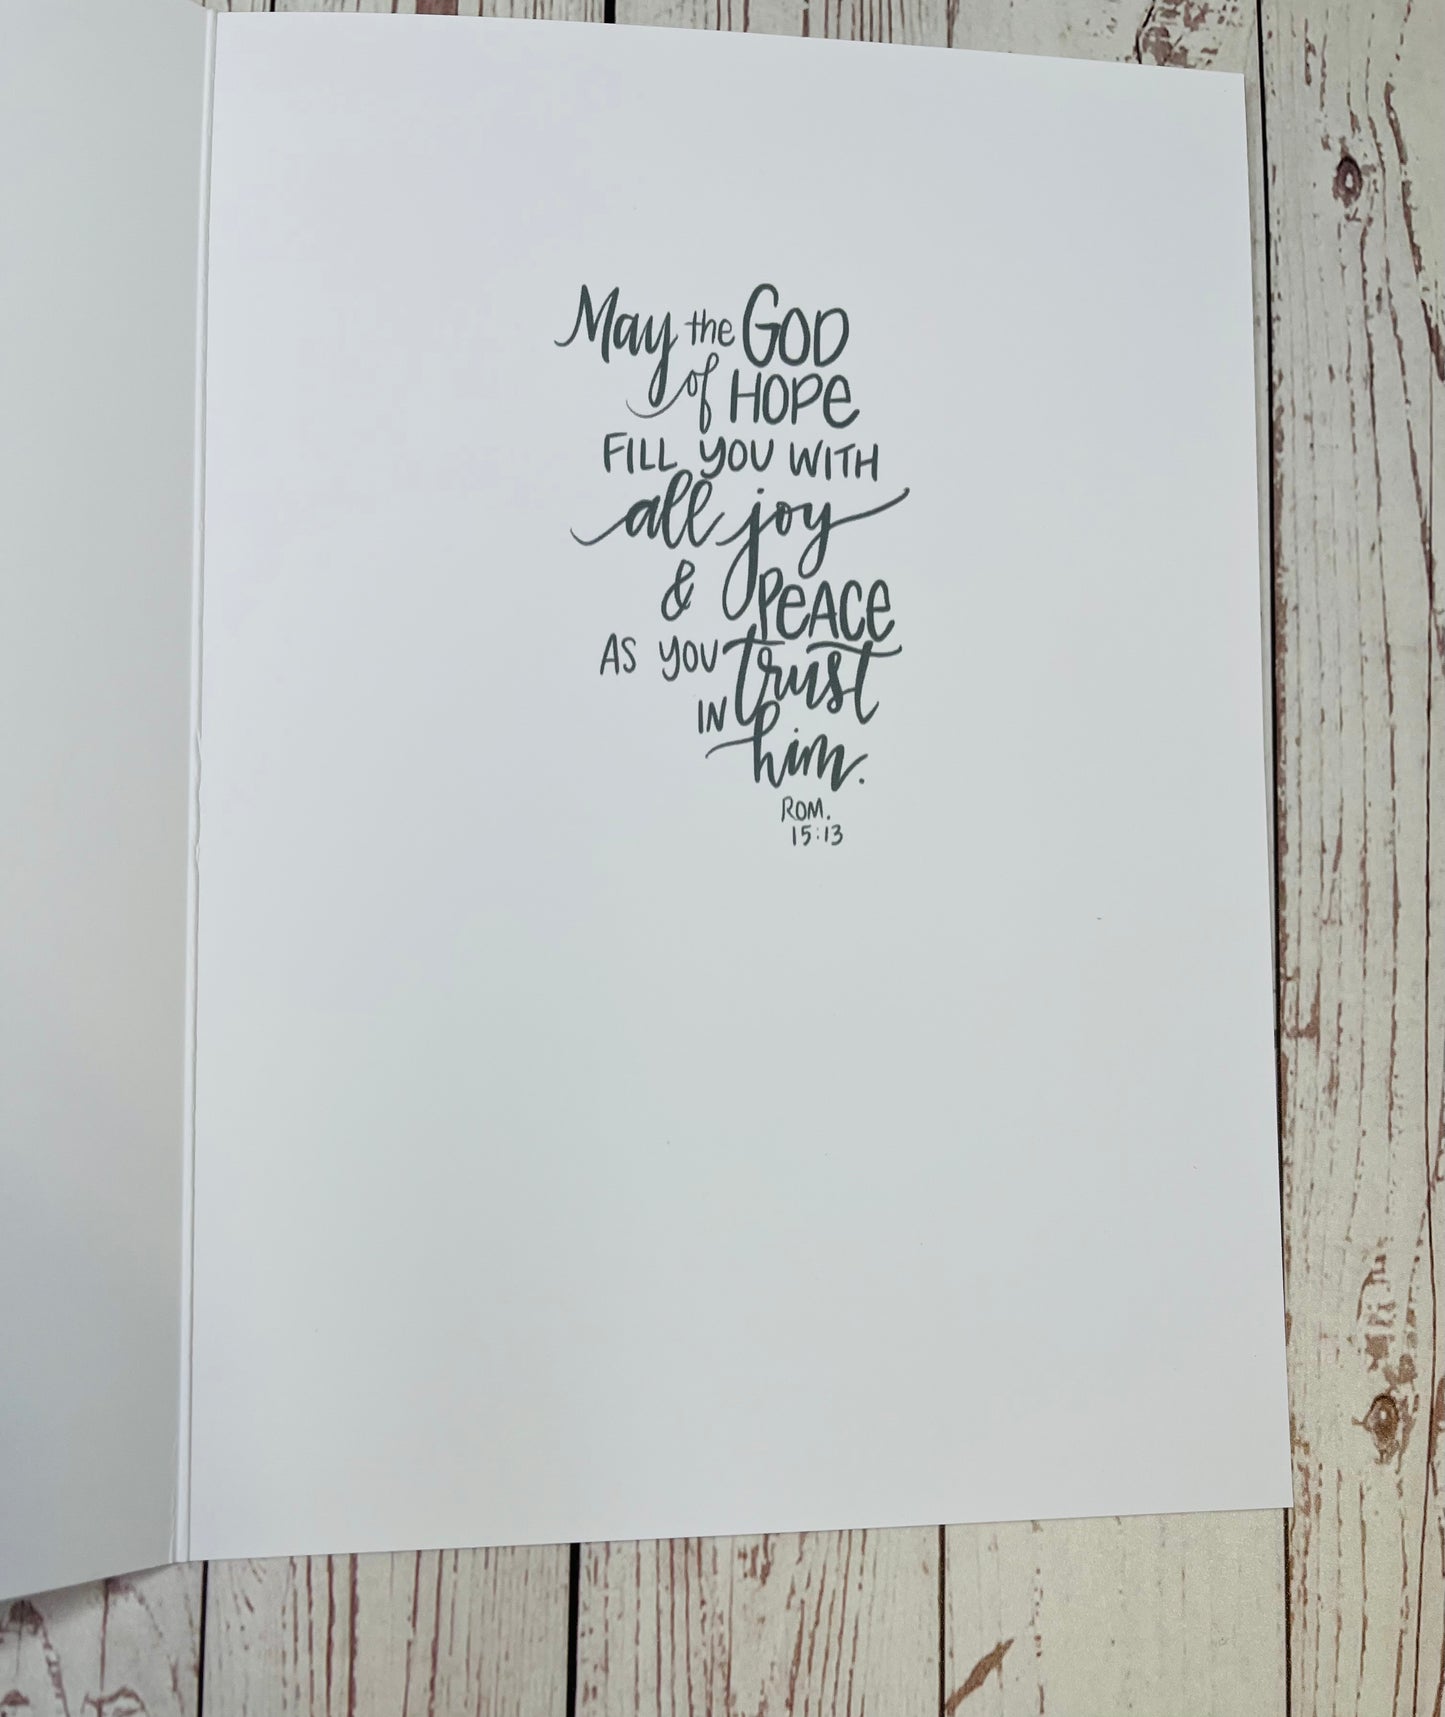 May the GOD
of HOPE
FILL YOU WITH
all joy
& PEACE
AS YOU trust
IN him.
ROM.
15:13